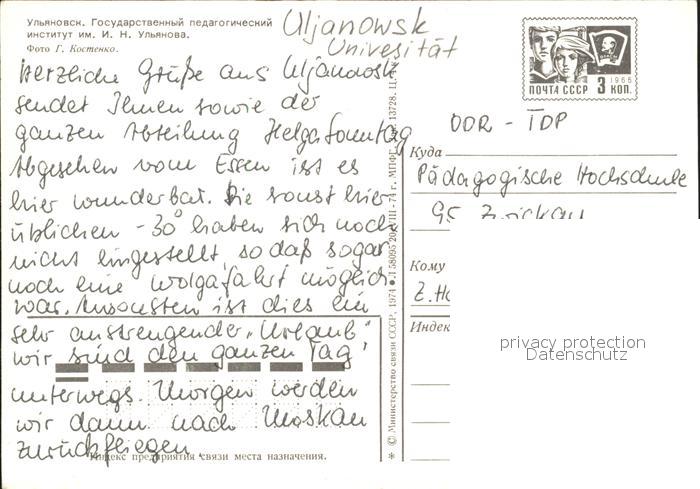 Ульяновск. Государственный педагогический
институт им. И. Н. Ульянова.
Фото Г. Костенко.
Uljanowsk
Univesität
Herzliche Grüße aus Uljanowsk
sendet Ihnen sowie der
ganzen Abteilung Helga Sonntag
Abgesehen vom Essen ist es
hier wunderbar. Die sonst hier
üblichen -30° haben sich noch
nicht eingestellt, so daß sogar
noch eine Wolgafahrt möglich
war. Ansonsten ist dies ein
sehr anstrengender "Urlaub"
wir sind den ganzen Tag
unterwegs. Morgen werden
wir dann nach Moskau
zurückfliegen.
Индекс предприятия связи места назначения.
* © Министерство связи СССР, 1974 • 13728. Ц. 4 к.
1966
ПОЧТА СССР 3 КОП.
DDR - ГДР
Куда
Pädagogische Hochschule
95 Zwickau
Кому
Z. H
Индек
privacy protection
Datenschutz